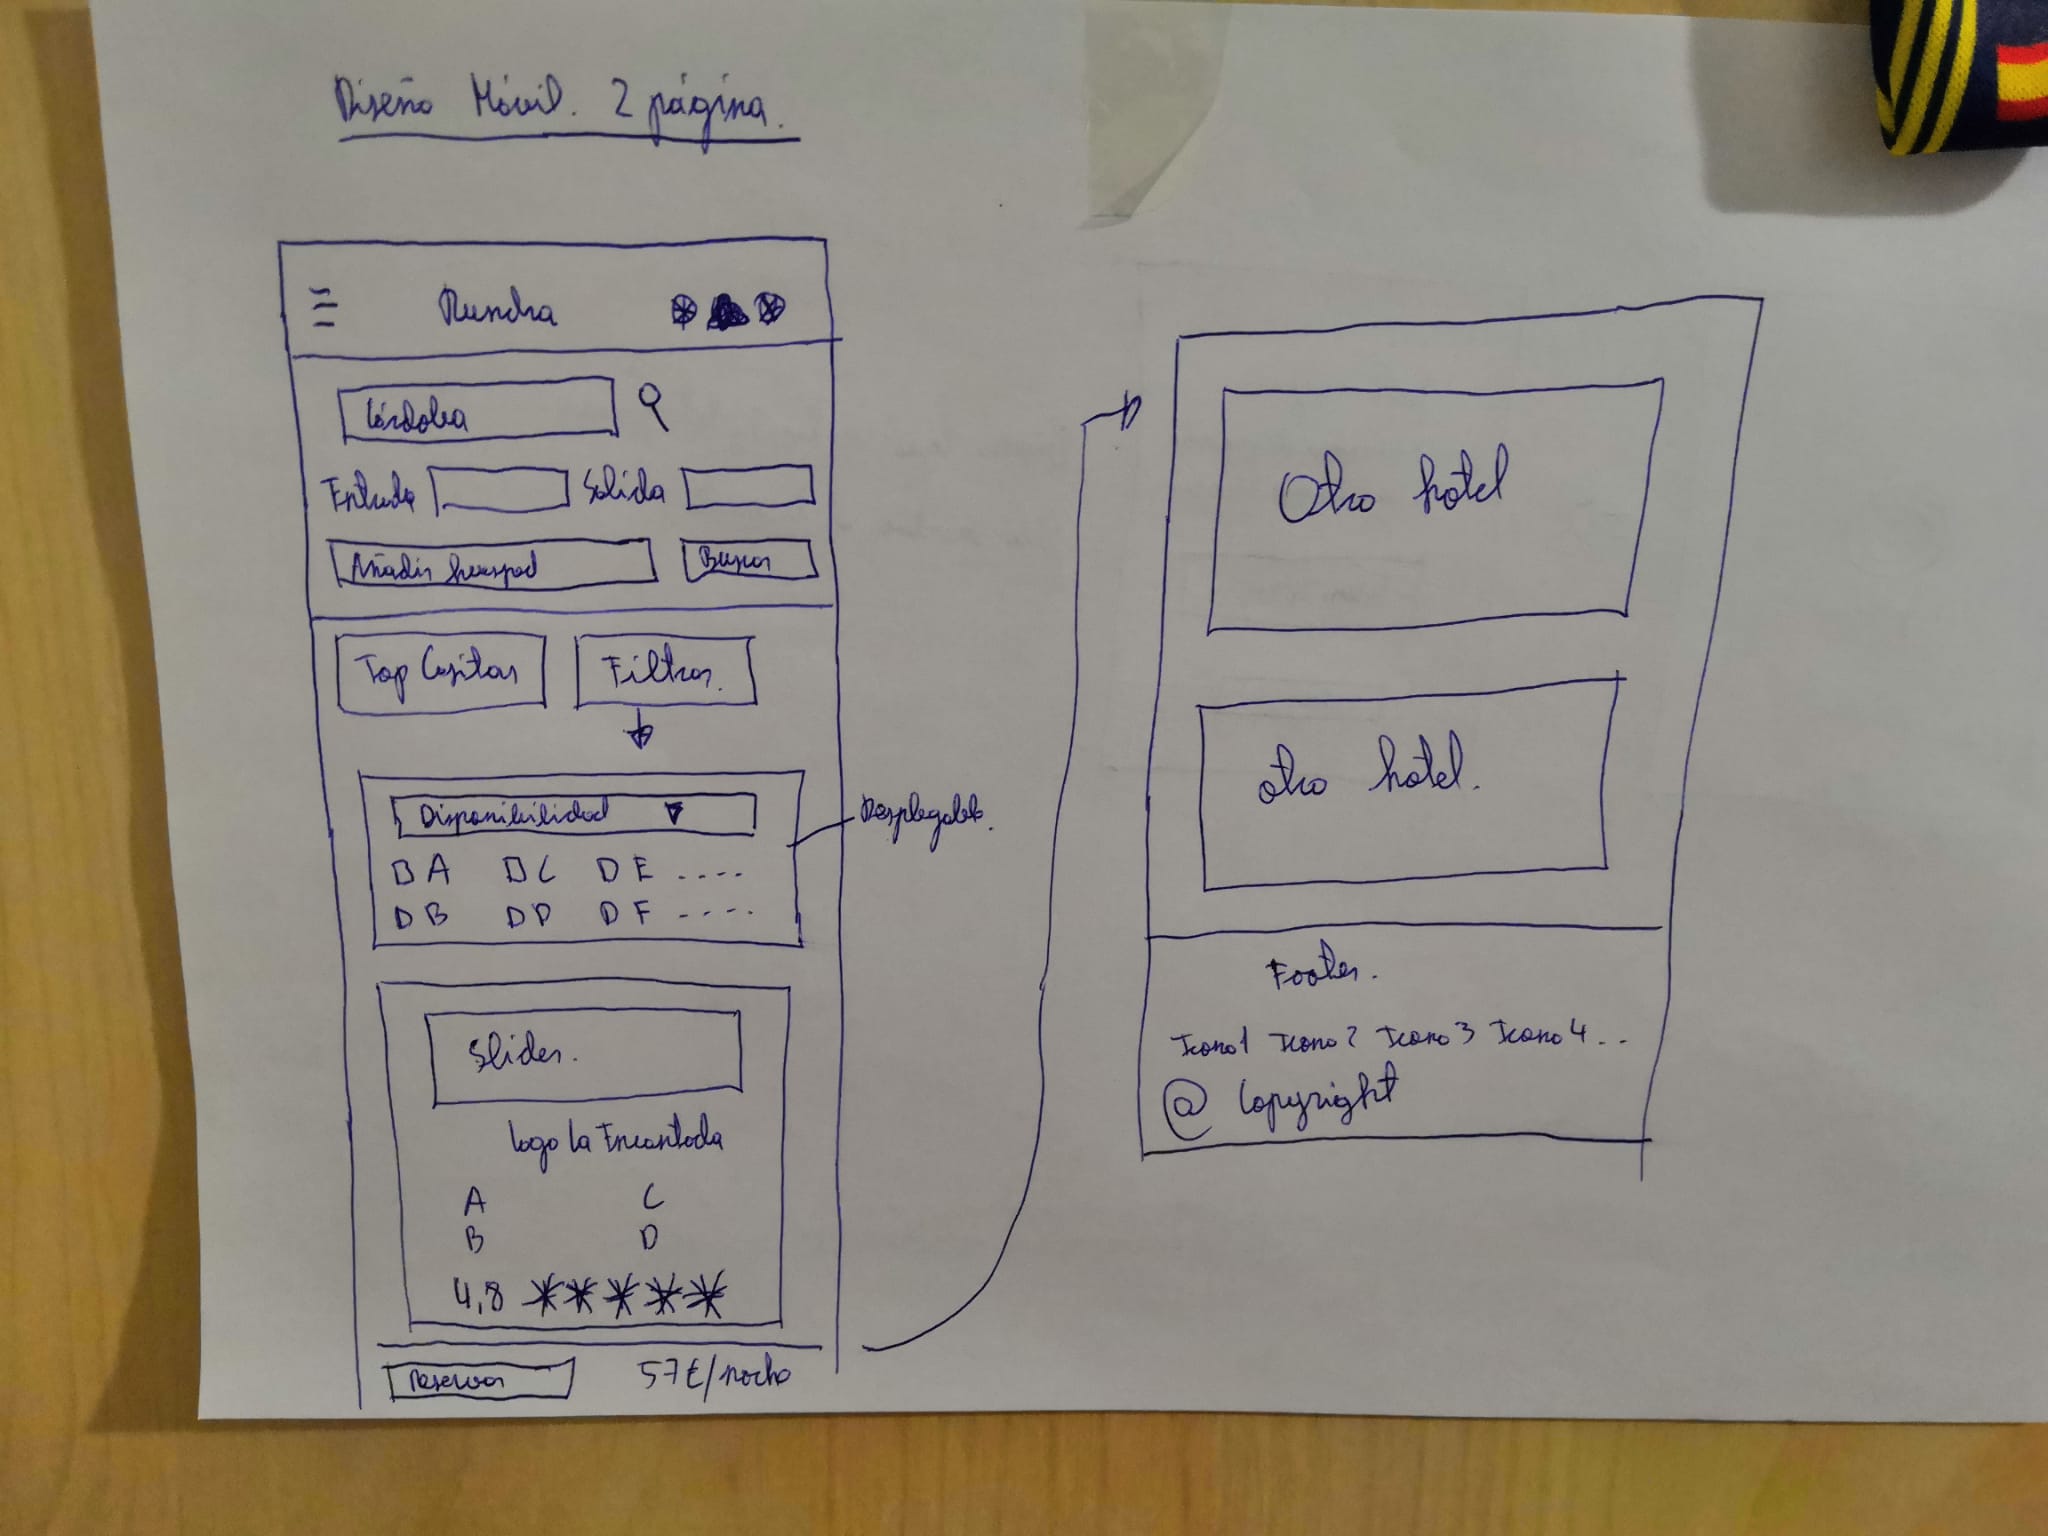 Diseño Móvil. 2 página.
Rundra
Córdoba
Entrada Salida
Añadir huesped Buscar
Top Casitas Filtros.
Disponibilidad ▼
Desplegable.
A C E ....
B D F ....
Slider.
Logo La Encantada
A C
B D
4,8 ★★★★★
Reservar 57€/noche
Otro hotel
otro hotel.
Footer.
Icono1 Icono2 Icono3 Icono4 ..
@ Copyright